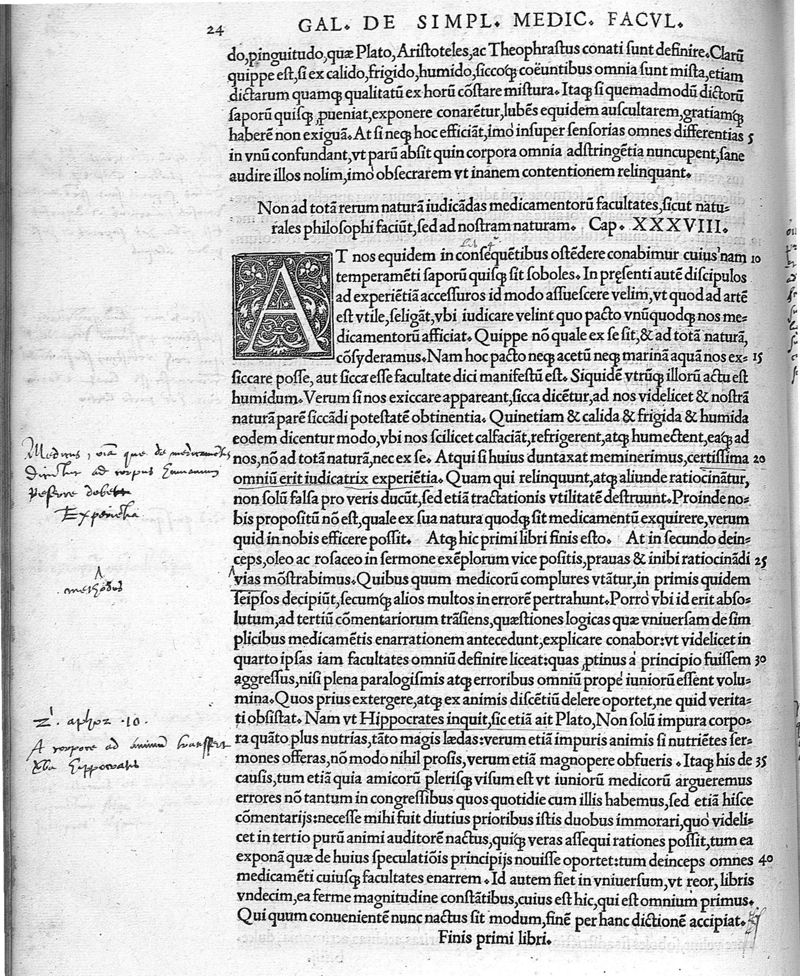 24
GAL. DE SIMPL. MEDIC. FACVL.
do, pinguitudo, quæ Plato, Aristoteles, ac Theophrastus conati sunt definire. Clarū
quippe est, si ex calido, frigido, humido, siccoq; coëuntibus omnia sunt mista, etiam
dictarum quamq; qualitatū ex horū cōstare mistura. Itaq; si quemadmodū dictorū
saporū quisq; ꝓueniat, exponere conarētur, lubēs equidem auscultarem, gratiamq;
haberē non exiguā. At si neq; hoc efficiāt, imò insuper sensorias omnes differentias 5
in vnū confundant, vt parū absit quin corpora omnia adstringētia nuncupent, sane
audire illos nolim, imò obsecrarem vt inanem contentionem relinquant.
Non ad totā rerum naturā iudicādas medicamentorū facultates, sicut natu-
rales philosophi faciūt, sed ad nostram naturam. Cap. XXXVIII.
AT nos equidem in consequētibus ostēdere conabimur cuius nam 10
temperamēti saporū quisq; sit soboles. In pręsenti autē discipulos
ad experiētiā accessuros id modo assuescere velim, vt quod ad artē
est vtile, seligāt, vbi iudicare velint quo pacto vnūquodq; nos me-
dicamentorū afficiat. Quippe nō quale ex se sit, & ad totā naturā,
cōsyderamus. Nam hoc pacto neq; acetū neq; marinā aquā nos ex- 15
siccare posse, aut sicca esse facultate dici manifestū est. Siquidē vtrūq; illorū actu est
humidum. Verum si nos exiccare appareant, sicca dicētur, ad nos videlicet & nostrā
naturā parē siccādi potestatē obtinentia. Quinetiam & calida & frigida & humida
eodem dicentur modo, vbi nos scilicet calfaciāt, refrigerent, atq; humectent, eaq; ad
nos, nō ad totā naturā, nec ex se. Atqui si huius duntaxat meminerimus, certissima 20
omniū erit iudicatrix experiētia. Quam qui relinquunt, atq; aliunde ratiocinātur,
non solū falsa pro veris ducūt, sed etiā tractationis vtilitatē destruunt. Proinde no-
bis propositū nō est, quale ex sua natura quodq; sit medicamentū exquirere, verum
quid in nobis efficere possit. Atq; hic primi libri finis esto. At in secundo dein-
ceps, oleo ac rosaceo in sermone exēplorum vice positis, prauas & inibi ratiocinādi 25
vias mōstrabimus. Quibus quum medicorū complures vtātur, in primis quidem
seipsos decipiūt, secumq; alios multos in errorē pertrahunt. Porrò vbi id erit abso-
lutum, ad tertiū cōmentariorum trāsiens, quæstiones logicas quæ vniuersam de sim
plicibus medicamētis enarrationem antecedunt, explicare conabor: vt videlicet in
quarto ipsas iam facultates omniū definire liceat: quas ꝓtinus à principio fuissem 30
aggressus, nisi plena paralogismis atq; erroribus omniū propè iuniorū essent volu-
mina. Quos prius extergere, atq; ex animis discētiū delere oportet, ne quid verita-
ti obsistat. Nam vt Hippocrates inquit, sic etiā ait Plato, Non solū impura corpo-
ra quāto plus nutrias, tāto magis lædas: verum etiā impuris animis si nutriētes ser-
mones offeras, nō modo nihil prosis, verum etiā magnopere obfueris. Itaq; his de 35
causis, tum etiā quia amicorū plerisq; visum est vt iuniorū medicorū argueremus
errores nō tantum in congressibus quos quotidie cum illis habemus, sed etiā hisce
cōmentarijs: necesse mihi fuit diutius prioribus istis duobus immorari, quò videli-
cet in tertio purū animi auditorē nactus, quiq; veras assequi rationes possit, tum ea
exponā quæ de huius speculatiōis principijs nouisse oportet: tum deinceps omnes 40
medicamēti cuiusq; facultates enarrem. Id autem fiet in vniuersum, vt reor, libris
vndecim, ea ferme magnitudine constātibus, cuius est hic, qui est omnium primus.
Qui quum conuenientē nunc nactus sit modum, finē per hanc dictionē accipiat.
Finis primi libri.
Medicus, viā que de medicamētis
dirigitur ad corpus humanum
debet
Experientia
methodus
2. aphor. 10.
A corpore ad animū transfert
Hippocratis